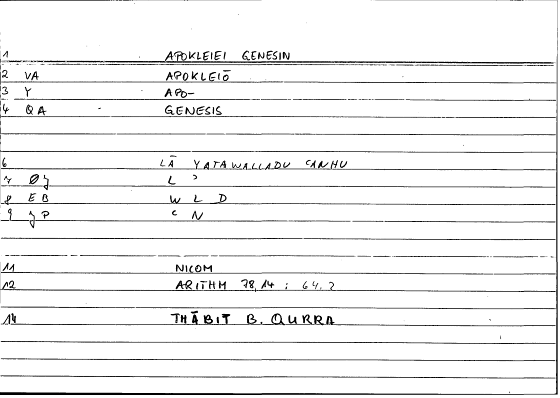 1 APOKLEIEI GENESIN
2 VA APOKLEIŌ
3 Y APO-
4 QA GENESIS
6 LĀ YATAWALLADU ʿANHU
7 Øʒ L ʾ
8 EB W L D
9 ʒP ʿ N
11 NICOM
12 ARITHM 78,14 : 64.2
14 THĀBIT B. QURRA